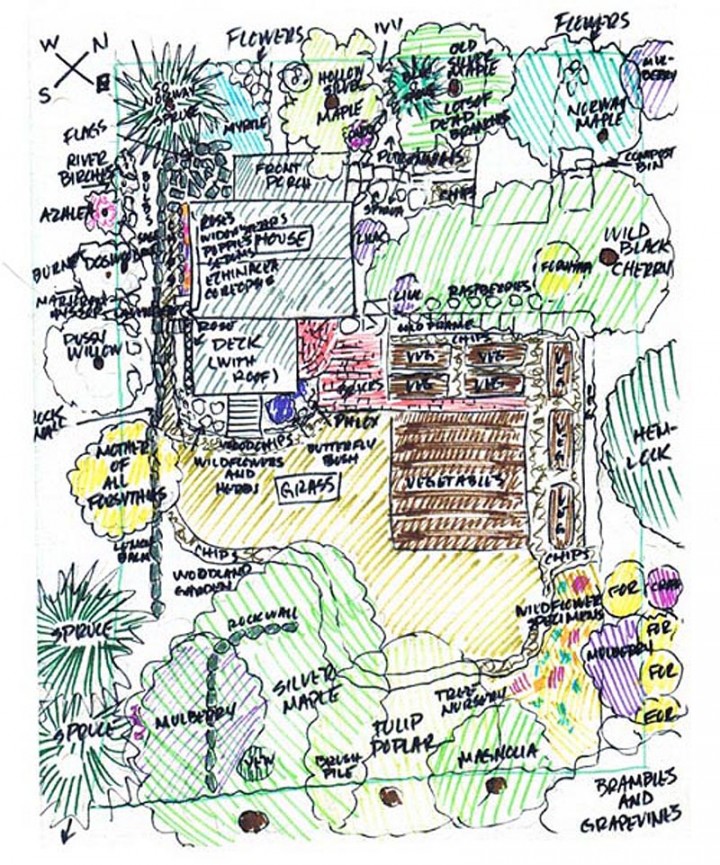 FLOWERS
IVY
FLOWERS
W N
S E
50'
NORWAY
SPRUCE
MYRTLE
HOLLOW
SILVER
MAPLE
BLUE
SPRUCE
OLD
SILVER
MAPLE
LOTS OF
DEAD
BRANCHES
NORWAY
MAPLE
MUL-
BERRY
FLAGS
RIVER
BIRCHES
AZALEA
BULBS
FRONT
PORCH
CHIPS
COMPOST
BIN
ROSES
POPPIES
SEDUMS
ECHINACEA
COREOPSIS
HOUSE
LILAC
LILAC
RASPBERRIES
FORSYTHIA
WILD
BLACK
CHERRY
DOGWOOD
PUSSY
WILLOW
ROSE
DECK
(WITH
ROOF)
COLD FRAME
CHIPS
VEG VEG
VEG VEG
VEG
BRICKS
ROCK
WALL
PHLOX
WOODCHIPS
WILDFLOWERS
AND
HERBS
BUTTERFLY
BUSH
GRASS
VEGETABLES
VEG
VEG
CHIPS
HEM-
LOCK
MOTHER
OF
ALL
FORSYTHIAS
LEMON
BALM
CHIPS
WOODLAND
GARDEN
ROCK WALL
SPRUCE
SPRUCE
MULBERRY
SILVER
MAPLE
YEW
BRUSH
PILE
TULIP
POPLAR
TREE
NURSERY
MAGNOLIA
WILDFLOWER
SPECIMENS
FOR
CRAB
FOR
MULBERRY
FOR
FOR
BRAMBLES
AND
GRAPEVINES